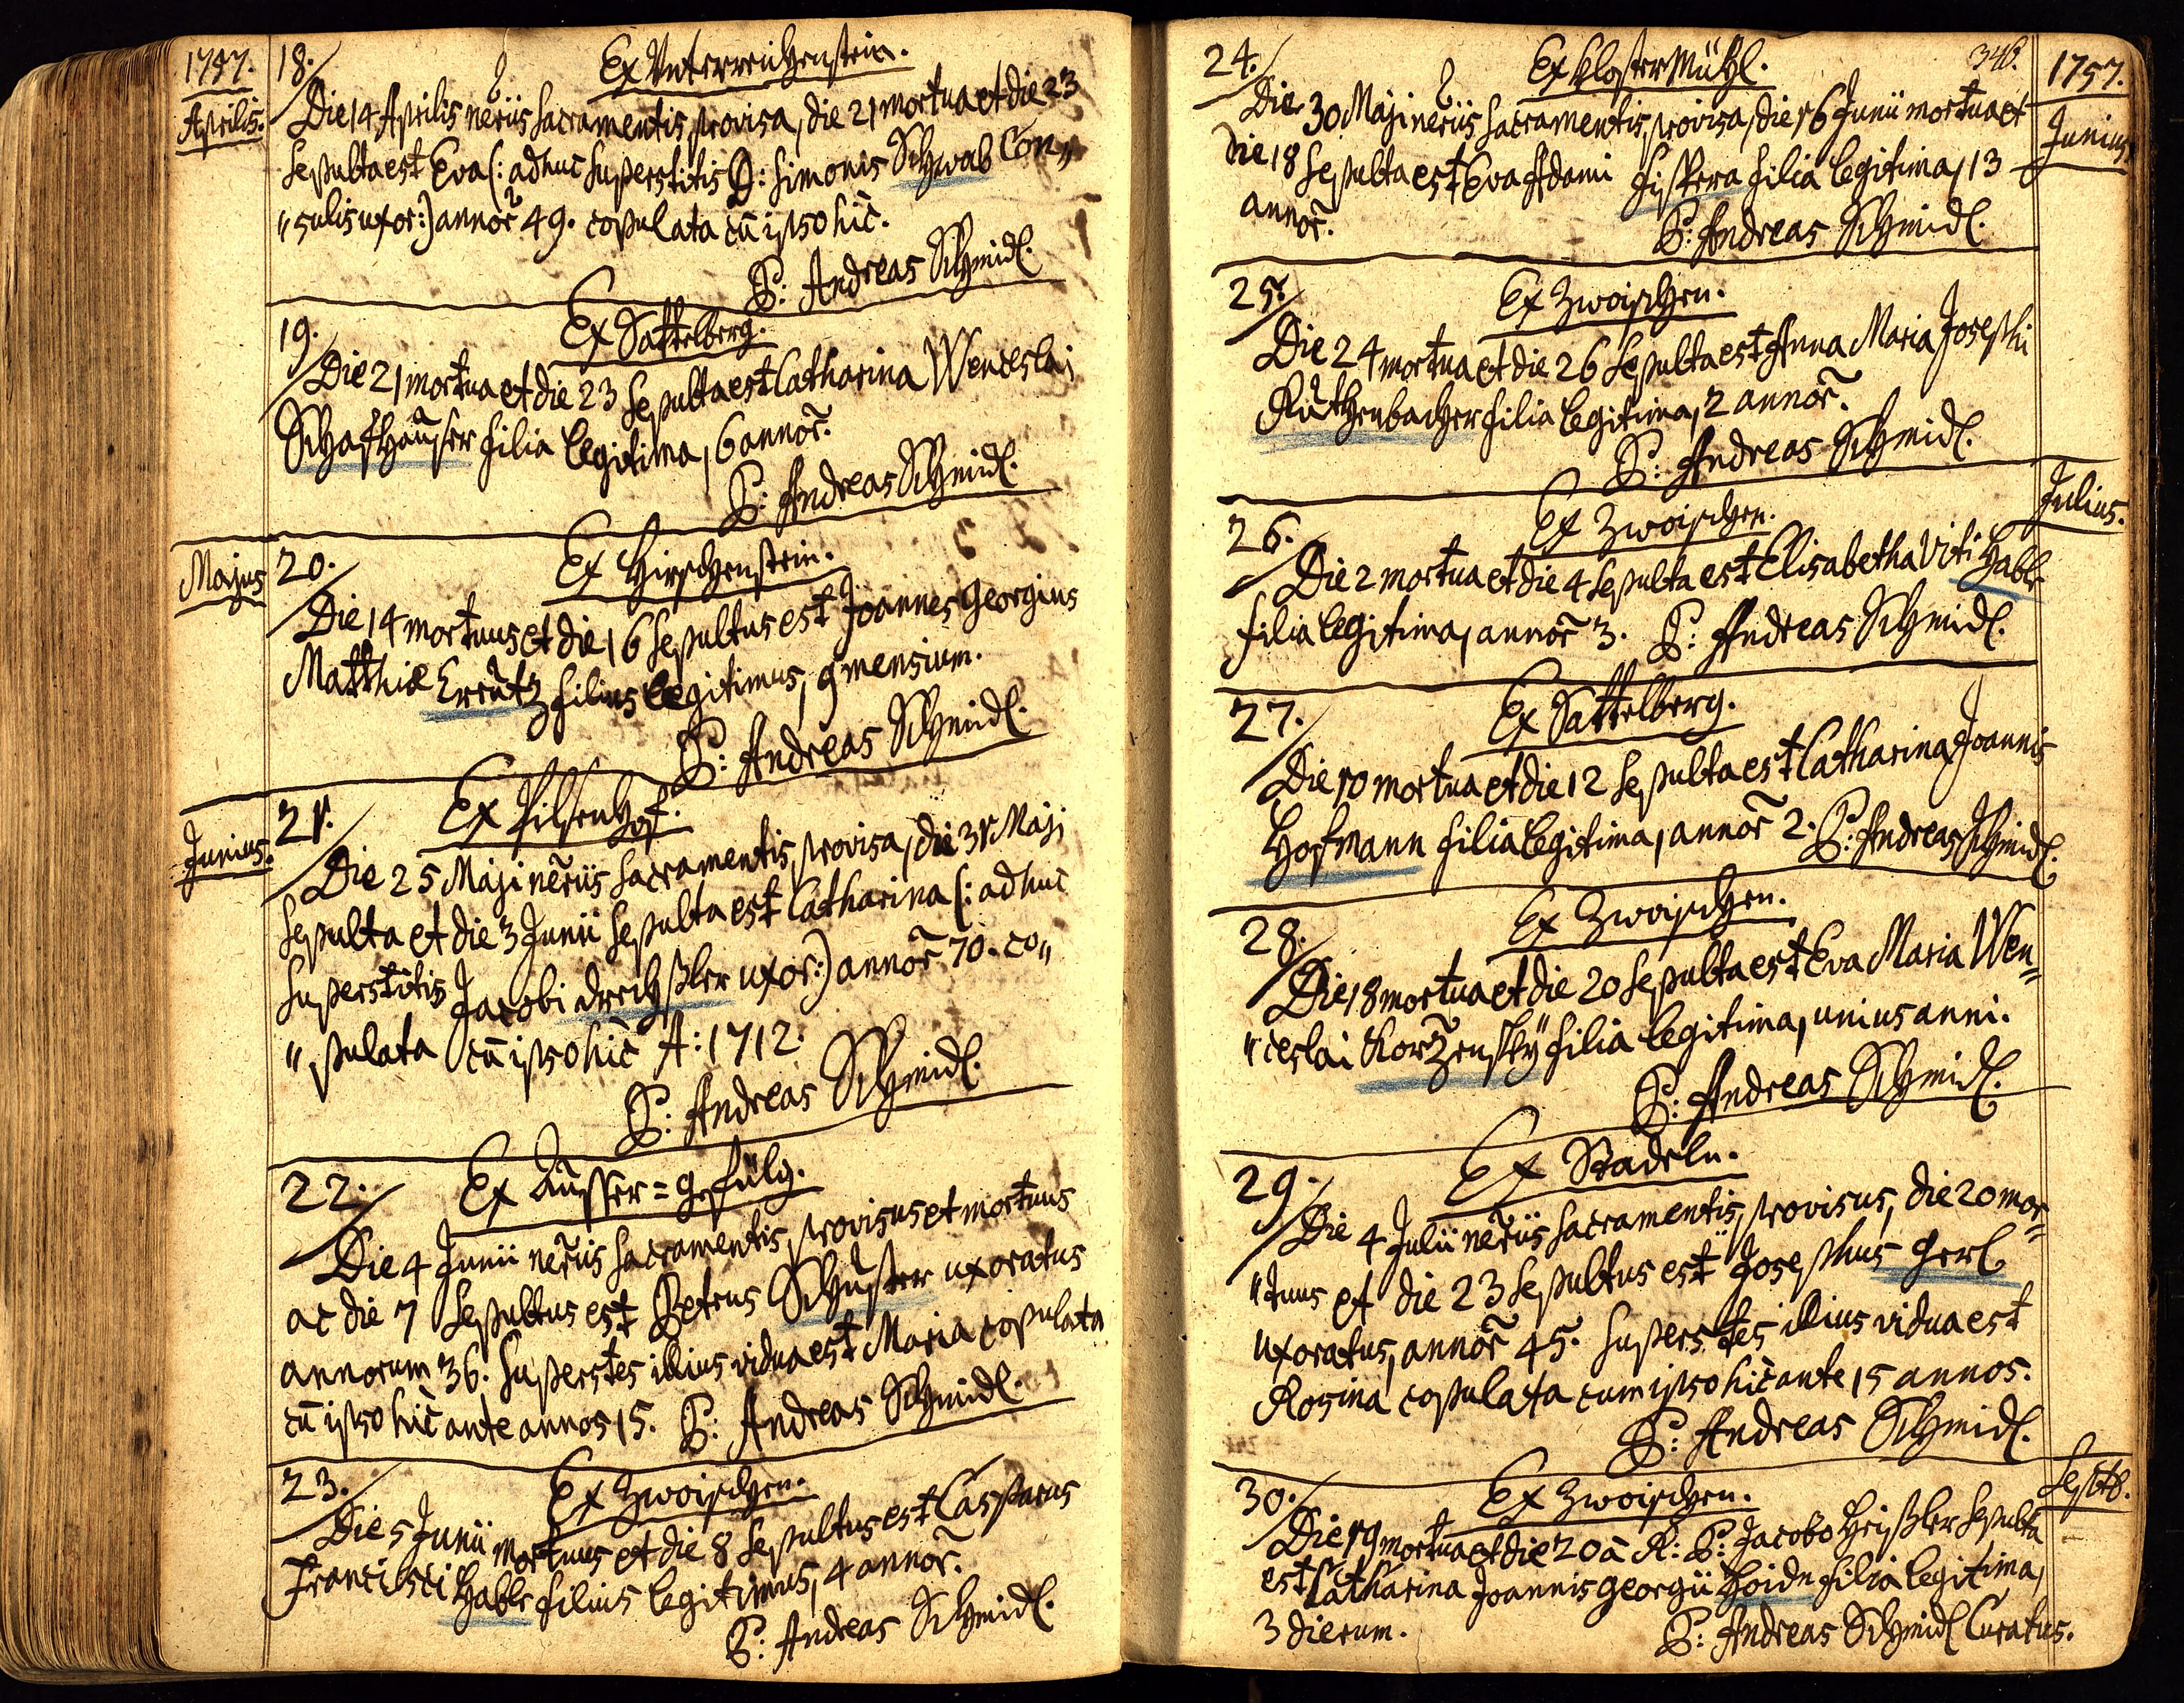 1757.
Aprilis.
18.
Ex Unterreichenstein.
Die 14 Aprilis nẽriis Sacramentis provisa, die 21 mortua et die 23
Sepulta est Eva (: adhuc Superstitis D: Simonis Schwab Con„
„sulis uxor:) annor̃ 49. copulata cũ ipso hic̃.
P: Andreas Schmidl.
19.
Ex Sattelberg.
Die 21 mortua et die 23 Sepulta est Catharina Wenceslai
Schafhauser filia legitima, 6 annor̃.
P: Andreas Schmidl.
Majus
20.
Ex Hirschenstein.
Die 14 mortuus et die 16 Sepultus est Joannes Georgius
Matthiæ Kreutz filius legitimus, 9 mensium.
P: Andreas Schmidl.
Junius.
21.
Ex Pilsenhof.
Die 25 Maji nẽriis Sacramentis provisa, die 31 Maji
Sepulta et die 3 Junii Sepulta est Catharina (: adhuc
Superstitis Jacobi Drechßler uxor:) annor̃ 70. co„
„pulata cũ ipso hic̃ A: 1712.
P: Andreas Schmidl.
22.
Ex Äusser=gefülg.
Die 4 Junii nẽriis Sacramentis provisus et mortuus
ac die 7 Sepultus est Petrus Schuster uxoratus
annorum 36. Superstes illius vidua est Maria copulata
cũ ipso hic̃ ante annos 15. P: Andreas Schmidl.
23.
Ex Zwoischen.
Die 5 Junii mortuus et die 8 Sepultus est Casparus
Francisci Hable filius legitimus, 4 annor̃.
P: Andreas Schmidl.
346.
1757.
Junius
24.
Ex KlosterMühl.
Die 30 Maji nẽriis Sacramentis provisa, die 16 Junii mortua et
die 18 Sepulta est Eva Adami Fischera filia legitima, 13
annor̃.
P: Andreas Schmidl.
25.
Ex Zwoischen.
Die 24 mortua et die 26 Sepulta est Anna Maria Josephi
Ruthenbacher filia legitima, 2 annor̃.
P: Andreas Schmidl.
Julius.
26.
Ex Zwoischen.
Die 2 mortua et die 4 Sepulta est Elisabetha Viti Hable
filia legitima, annor̃ 3. P: Andreas Schmidl.
27.
Ex Sattelberg.
Die 10 mortua et die 12 Sepulta est Catharina Joannis
Hofmann filia legitima, annor̃ 2. P: Andreas Schmidl.
28.
Ex Zwoischen.
Die 18 mortua et die 20 Sepulta est Eva Maria Wen„
„ceslai Korzensky filia legitima, unius anni.
P: Andreas Schmidl.
29.
Ex Stadeln.
Die 4 Julii nẽriis Sacramentis provisus, die 20 mor„
„tuus et die 23 Sepultus est Josephus Gerl
uxoratus, annor̃ 45. Superstes illius vidua est
Rosina copulata cum ipso hic̃ ante 15 annos.
P: Andreas Schmidl.
Septb.
30.
Ex Zwoischen.
Die 19 mortua et die 20 à R: P: Jacobo Heißler Sepulta
est Catharina Joannis Georgii Hoidn filia legitima,
3 dierum.
P: Andreas Schmidl Curatus.